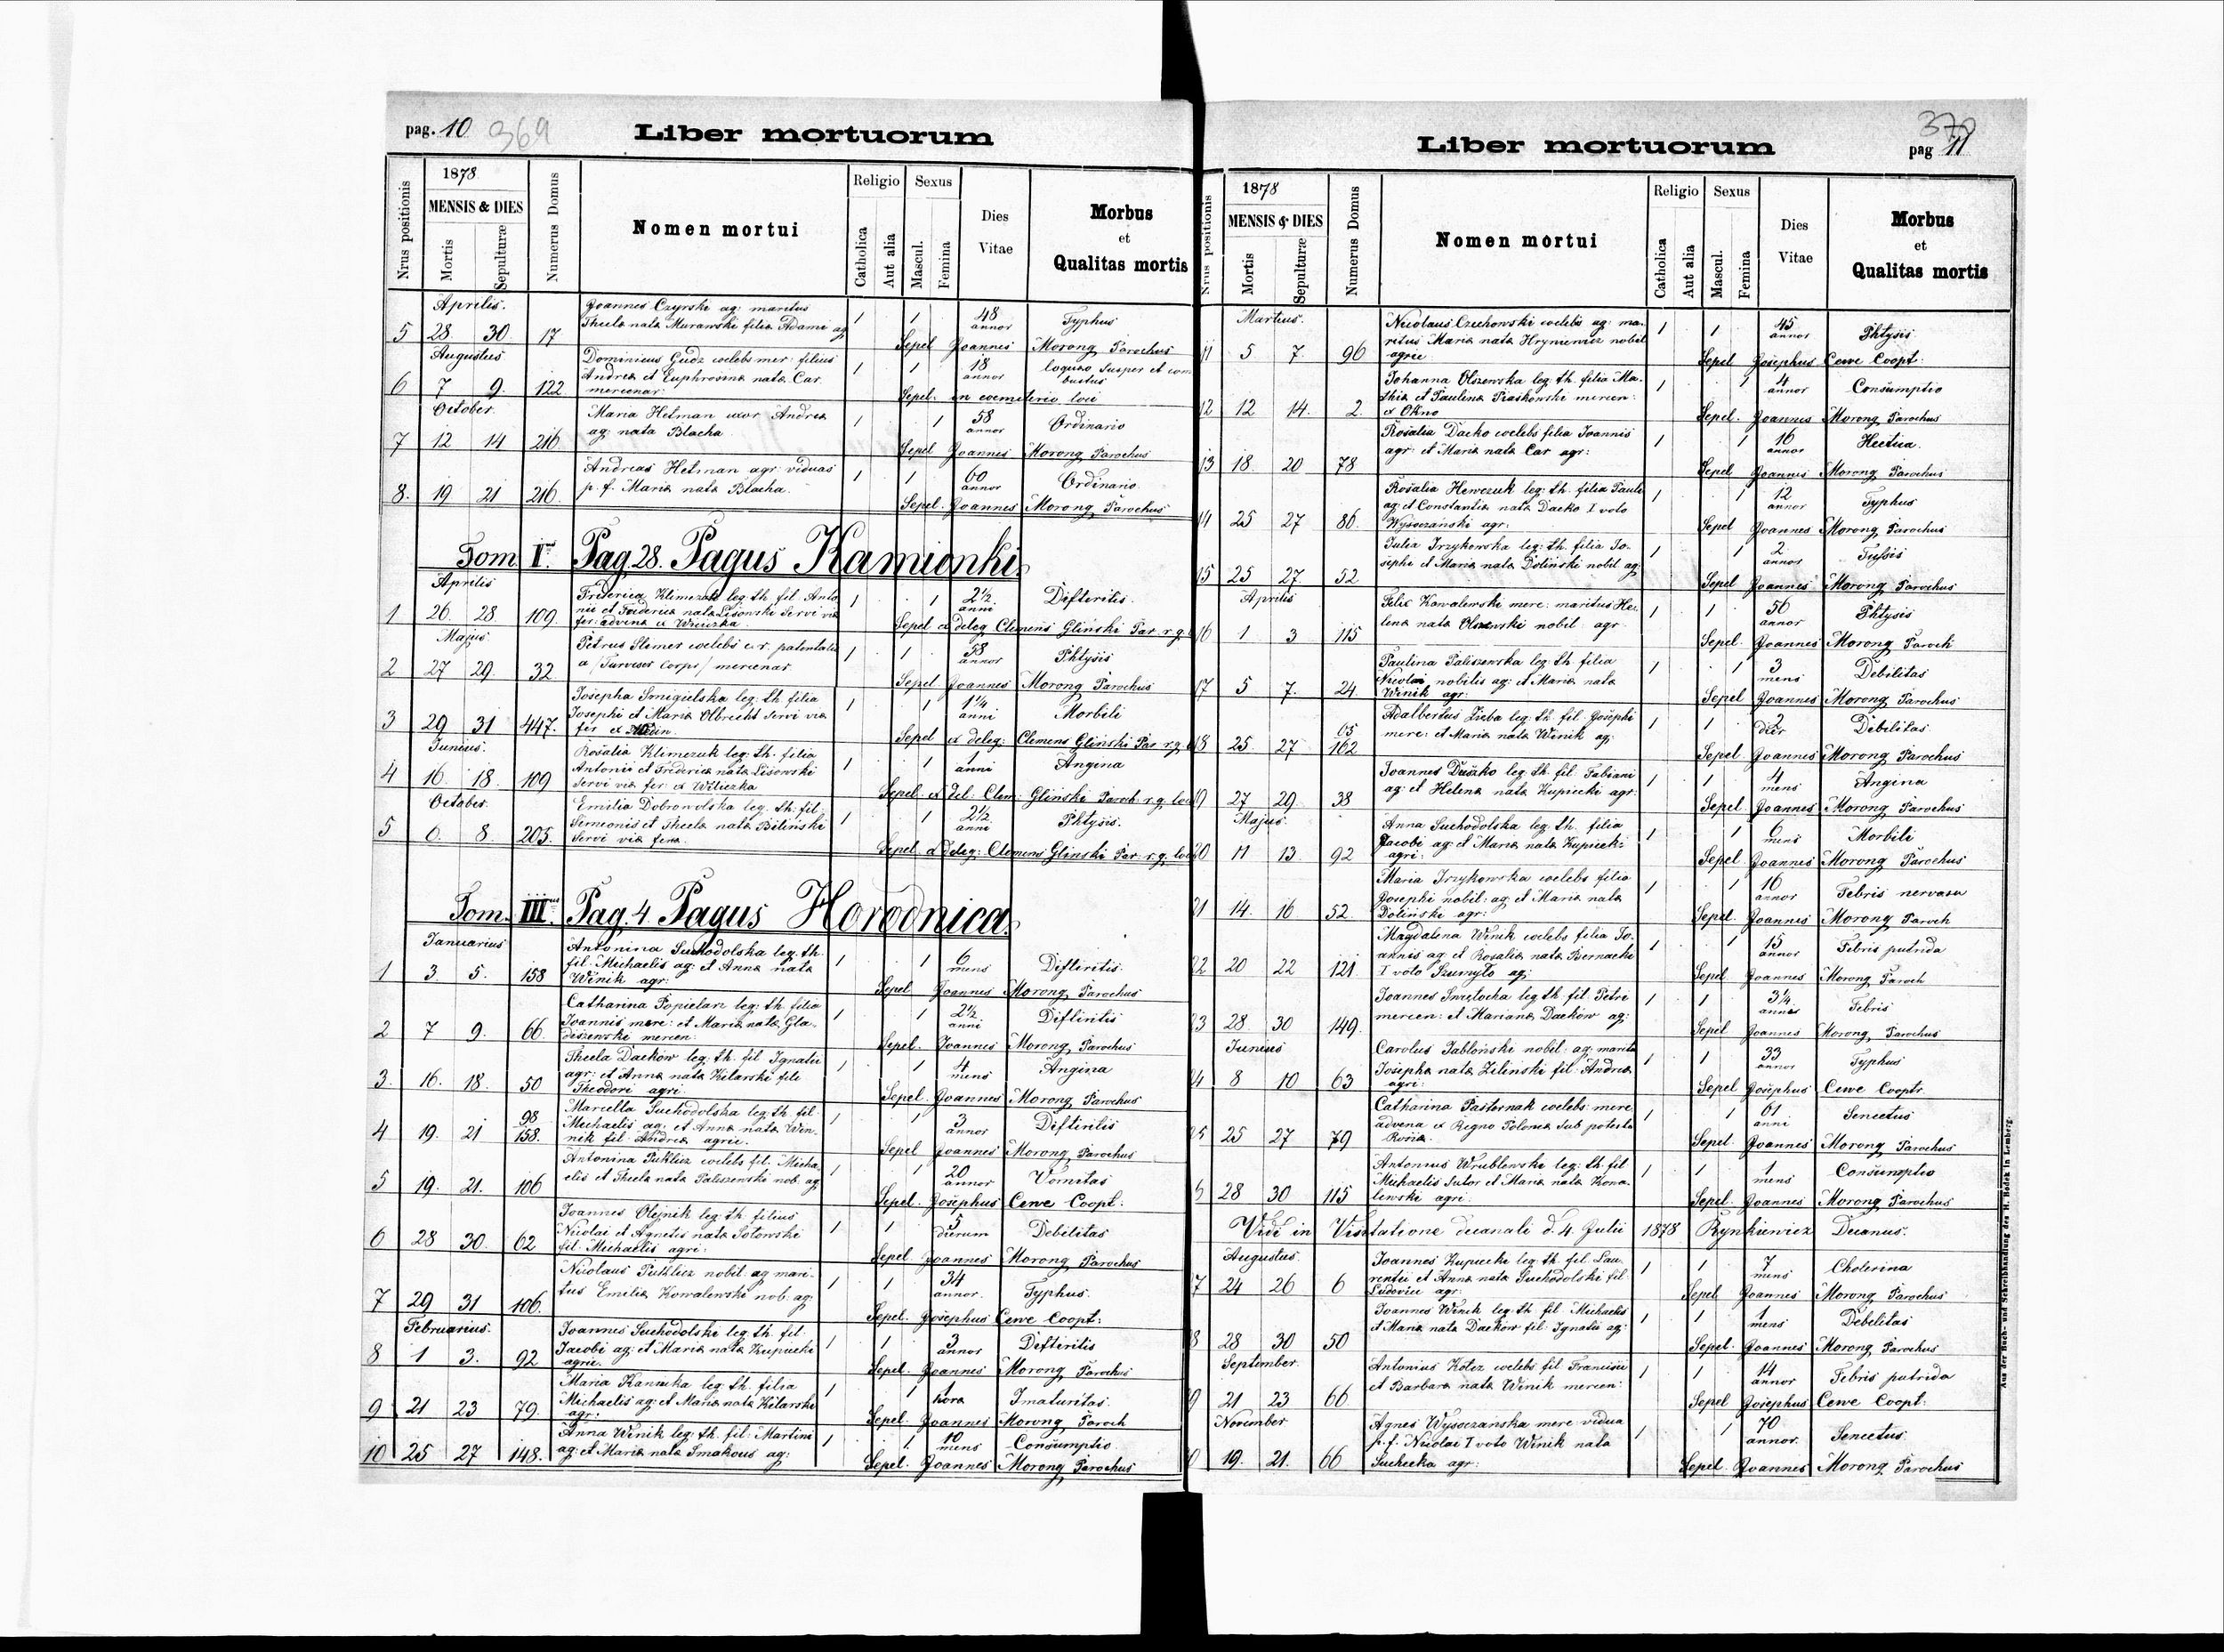 pag. 10 369
Liber mortuorum
Nrus positionis
1878
MENSIS & DIES
Mortis
Sepulturæ
Numerus Domus
Nomen mortui
Religio
Catholica
Aut alia
Sexus
Mascul.
Femina
Dies
Vitae
Morbus
et
Qualitas mortis
Aprilis.
Joannes Czyrski ag: maritus
Thecla nata Murawski filia Adami ag
5 28 30 17 1 1 48 annor Typhus
Sepel Joannes Morong Parochus
Augustus
Dominicus Gudz coelebs mer: filius
Andrea et Euphrosina nata Car
mercenar:
6 7 9. 122 1 1 18 annor
Sepel. in coemeterio loci
October.
Maria Hetman uxor Andrea
ag: nata Blacha
7 12 14 216 1 1 58 annor Ordinario
Sepel Joannes Morong Parochus
Andreas Hetman agr: viduas
p. f. Maria nata Blacha.
8. 19 21 216. 1 1 60 annor Ordinario
Sepel. Joannes Morong Parochus
Tom. I. Pag. 28. Pagus Kamionki.
Aprilis
Friderica Klimczuk leg. th. fil. Anto
nii et Friderica nata Lisowski servi via
fer: advena ex Wieliczka
1 26. 28. 109. 1 1 2½ anni Difteritis.
Sepel ex deleg Clemens Gliński Par r. g.
Majus.
Petrus Slemer coelebs
a /Turviser Corps/ mercenar.
2 27 29. 32 1 1 58 annor Phtysis
Sepel Joannes Morong Parochus
Josepha Smigielska leg. th. filia
Josephi et Maria Olbrecht servi via
fer ex
3 29 31 447. 1 1 1¼ anni Morbili
Sepel ex deleg: Clemens Gliński Par r. g.
Junius.
Rosalia Klimczuk leg. th. filia
Antonii et Friderica nata Lisowski
servi via fer ex Wiliczka
4 16. 18. 109 1 1 1 anni Angina
Sepel ex del: Clem: Gliński Paroch r. g. loci
October.
Emilia Dobrowolska leg. th. fil.
Simeonis et Thecla nata Biliński
servi via fera.
5 6. 8. 203. 1 1 2½ anni Phtysis.
Sepel ex deleg: Clemens Gliński Par r. g. loci
Tom. III. Pag. 4. Pagus Horodnica.
Januarius
Antonina Suchodolska leg. th.
fil. Michaelis ag: et Anna nata
Winik agr:
1 3. 5. 158 1 1 6 mens Difteritis.
Sepel Joannes Morong Parochus
Catharina Popielarz leg: th. filia
Joannis merc: et Maria nata Gla-
diszewski mercen.
2 7 9. 66. 1 1 2½ anni Difteritis
Sepel. Joannes Morong Parochus
Thecla Dackow leg. th. fil. Ignatii
agr: et Anna nata Kilarski fili
Theodori agri.
3. 16. 18. 50 1 1 4 mens Angina
Sepel. Joannes Morong Parochus
Marcella Suchodolska leg. th. fil.
Michaelis ag: et Anna nata Win-
nik fil. Andrea agric.
4 19. 21 98 158. 1 1 3 annor Difteritis
Sepel Joannes Morong Parochus
Antonina Puklicz coelebs fil. Micha
elis et Thecla nata Paliszewski nob. ag
5 19. 21. 106 1 1 20 annor Vomitas
Sepel. Josephus Cewe Coopt.
Joannes Olejnik leg. th. filius
Nicolai et Agnetis nata Sotowski
fil. Michaelis agri:
6 28 30. 62 1 1 5 dierum Debilitas
Sepel Joannes Morong Parochus
Nicolaus Puklicz nobil. ag mari-
tus Emilia Kowalewski nob. ag:
7 29 31 106. 1 1 34 annor. Typhus.
Sepel. Josephus Cewe Coopt:
Februarius.
Joannes Suchodolski leg. th. fil.
Jacobi ag: et Maria nata Kupiecki
agric.
8 1 3. 92 1 1 3 annor Difteritis
Sepel. Joannes Morong Parochus
Maria Kannika leg. th. filia
Michaelis ag: et Maria nata Kilarski
agr:
9 21 23 79. 1 1 1 hora Imaturitas.
Sepel. Joannes Morong Paroch
Anna Winik leg. th. fil. Martini
ag: et Maria nata Smakous ag:
10 25 27 148. 1 1. 10 mens Consumptio
Sepel. Joannes Morong Parochus
370
pag 11
Liber mortuorum
Nrus positionis
1878
MENSIS & DIES
Mortis
Sepulturæ
Numerus Domus
Nomen mortui
Religio
Catholica
Aut alia
Sexus
Mascul.
Femina
Dies
Vitae
Morbus
et
Qualitas mortis
Martius.
Nicolaus Czechowski coelebs ag: ma-
ritus Maria nata Hryniewicz nobil
agric
11 5 7. 96 1 1 45 annor Phtysis
Sepel Josephus Cewe Coopt.
Johanna Olszewska leg. th. filia Ma-
thia et Paulina Piaskowski mercen:
ex Okno
12 12 14. 2. 1 1 4 annor Consumptio
Sepel. Joannes Morong Parochus
Rosalia Dacko coelebs filia Joannis
agr: et Maria nata Car agr:
13 18. 20 78 1 1 16 annor Hectica.
Sepel Joannes Morong Parochus
Rosalia Hewczuk leg: th. filia Pauli
ag: et Constantia nata Dacko I voto
Wysoczański agr:
14 25 27 86. 1 1 12 annor Typhus
Sepel Joannes Morong Parochus
Julia Irzykowska leg: th. filia Jo-
sephi et Maria nata Doliński nobil ag
15 25 27 52 1 1 2 annor Tussis
Sepel Joannes Morong Parochus
Aprilis
Felix Kowalewski merc: maritus He-
lena nata Olszewski nobil. agr
16 1 3 115 1 1 56 annor Phtysis
Sepel. Joannes Morong Paroch
Paulina Paliszewska leg. th. filia
Nicolai nobilis ag: et Maria nata
Winik agr:
17 5 7. 24 1 1 3 mens Debilitas
Sepel Joannes Morong Parochus
Adalbertus Zieba leg. th. fil. Josephi
merc: et Maria nata Winik ag:
18 25 27 65 162 1 1 2 dier Debilitas.
Sepel Joannes Morong Parochus
Joannes Duszko leg. th. fil. Fabiani
ag: et Helena nata Kupiecki agr:
19 27 29. 38 1 1 4 mens Angina
Sepel Joannes Morong Parochus
Majus.
Anna Suchodolska leg. th. filia
Jacobi ag: et Maria nata Kupiecki
agri:
20 11 13 92 1 1 6 mens Morbili
Sepel Joannes Morong Parochus
Maria Irzykowska coelebs filia
Josephi nobil: ag: et Maria nata
Doliński agr:
21 14. 16 52. 1 1 16 annor Febris nervasa
Sepel. Joannes Morong Paroch
Magdalena Winik coelebs filia Jo-
annis ag: et Rosalia nata Biernacki
I voto Szumyło ag:
22 20 22 121 1 1 15 annor Febris putrida
Sepel. Joannes Morong Paroch
Joannes Swiętocha leg. th. fil. Petri
mercen: et Mariana Dackow ag:
23 28. 30 149. 1 1 3¼ annor Febris
Sepel Joannes Morong Parochus
Junius
Carolus Jabłoński nobil: ag: marita
Josepha nata Zilinski fil: Andrea
agri:
24 8 10 63 1 1 33 annor Typhus
Sepel Josephus Cewe Cooptr.
Catharina Pasternak coelebs merc
advena ex Regno Polonia sub potesta
Rossia.
25 25 27 79 1 1 61 anni Senectus
Sepel. Joannes Morong Parochus
Antonius Wrublewski leg. th. fil
Michaelis sutor et Maria nata Kowa-
lewski agri:
28 30 115 1 1 1 mens Consumptio
Sepel. Joannes Morong Parochus
Vidi in Visitatione decanali d. 4 Julii 1878 Rynkiewicz Decanus.
Augustus
Joannes Kupiecki leg. th. fil. Lau-
rentii et Anna nata Suchodolski fil.
Ludovici agr:
7 24 26 6 1 1 7 mens Cholerina
Sepel Joannes Morong Parochus
Joannes Winik leg. th. fil. Michaelis
et Maria nata Dackow fil. Ignatii ag:
8 28 30 50 1 1 1 mens Debelitas
Sepel. Joannes Morong Parochus
September.
Antonius Kotez coelebs fil. Francisci
et Barbara nata Winik mercen:
9 21 23 66. 1 1 14 annor Febris putrida
Sepel Josephus Cewe Coopt:
November
Agnes Wysoczańska merc vidua
p. f. Nicolai I voto Winik nata
Suchecka agr:
19. 21. 66 1 1 70 annor. Senectus.
Sepel. Joannes Morong Parochus
Aus der Buch- und Schreibhandlung des H. Bodek in Lemberg.